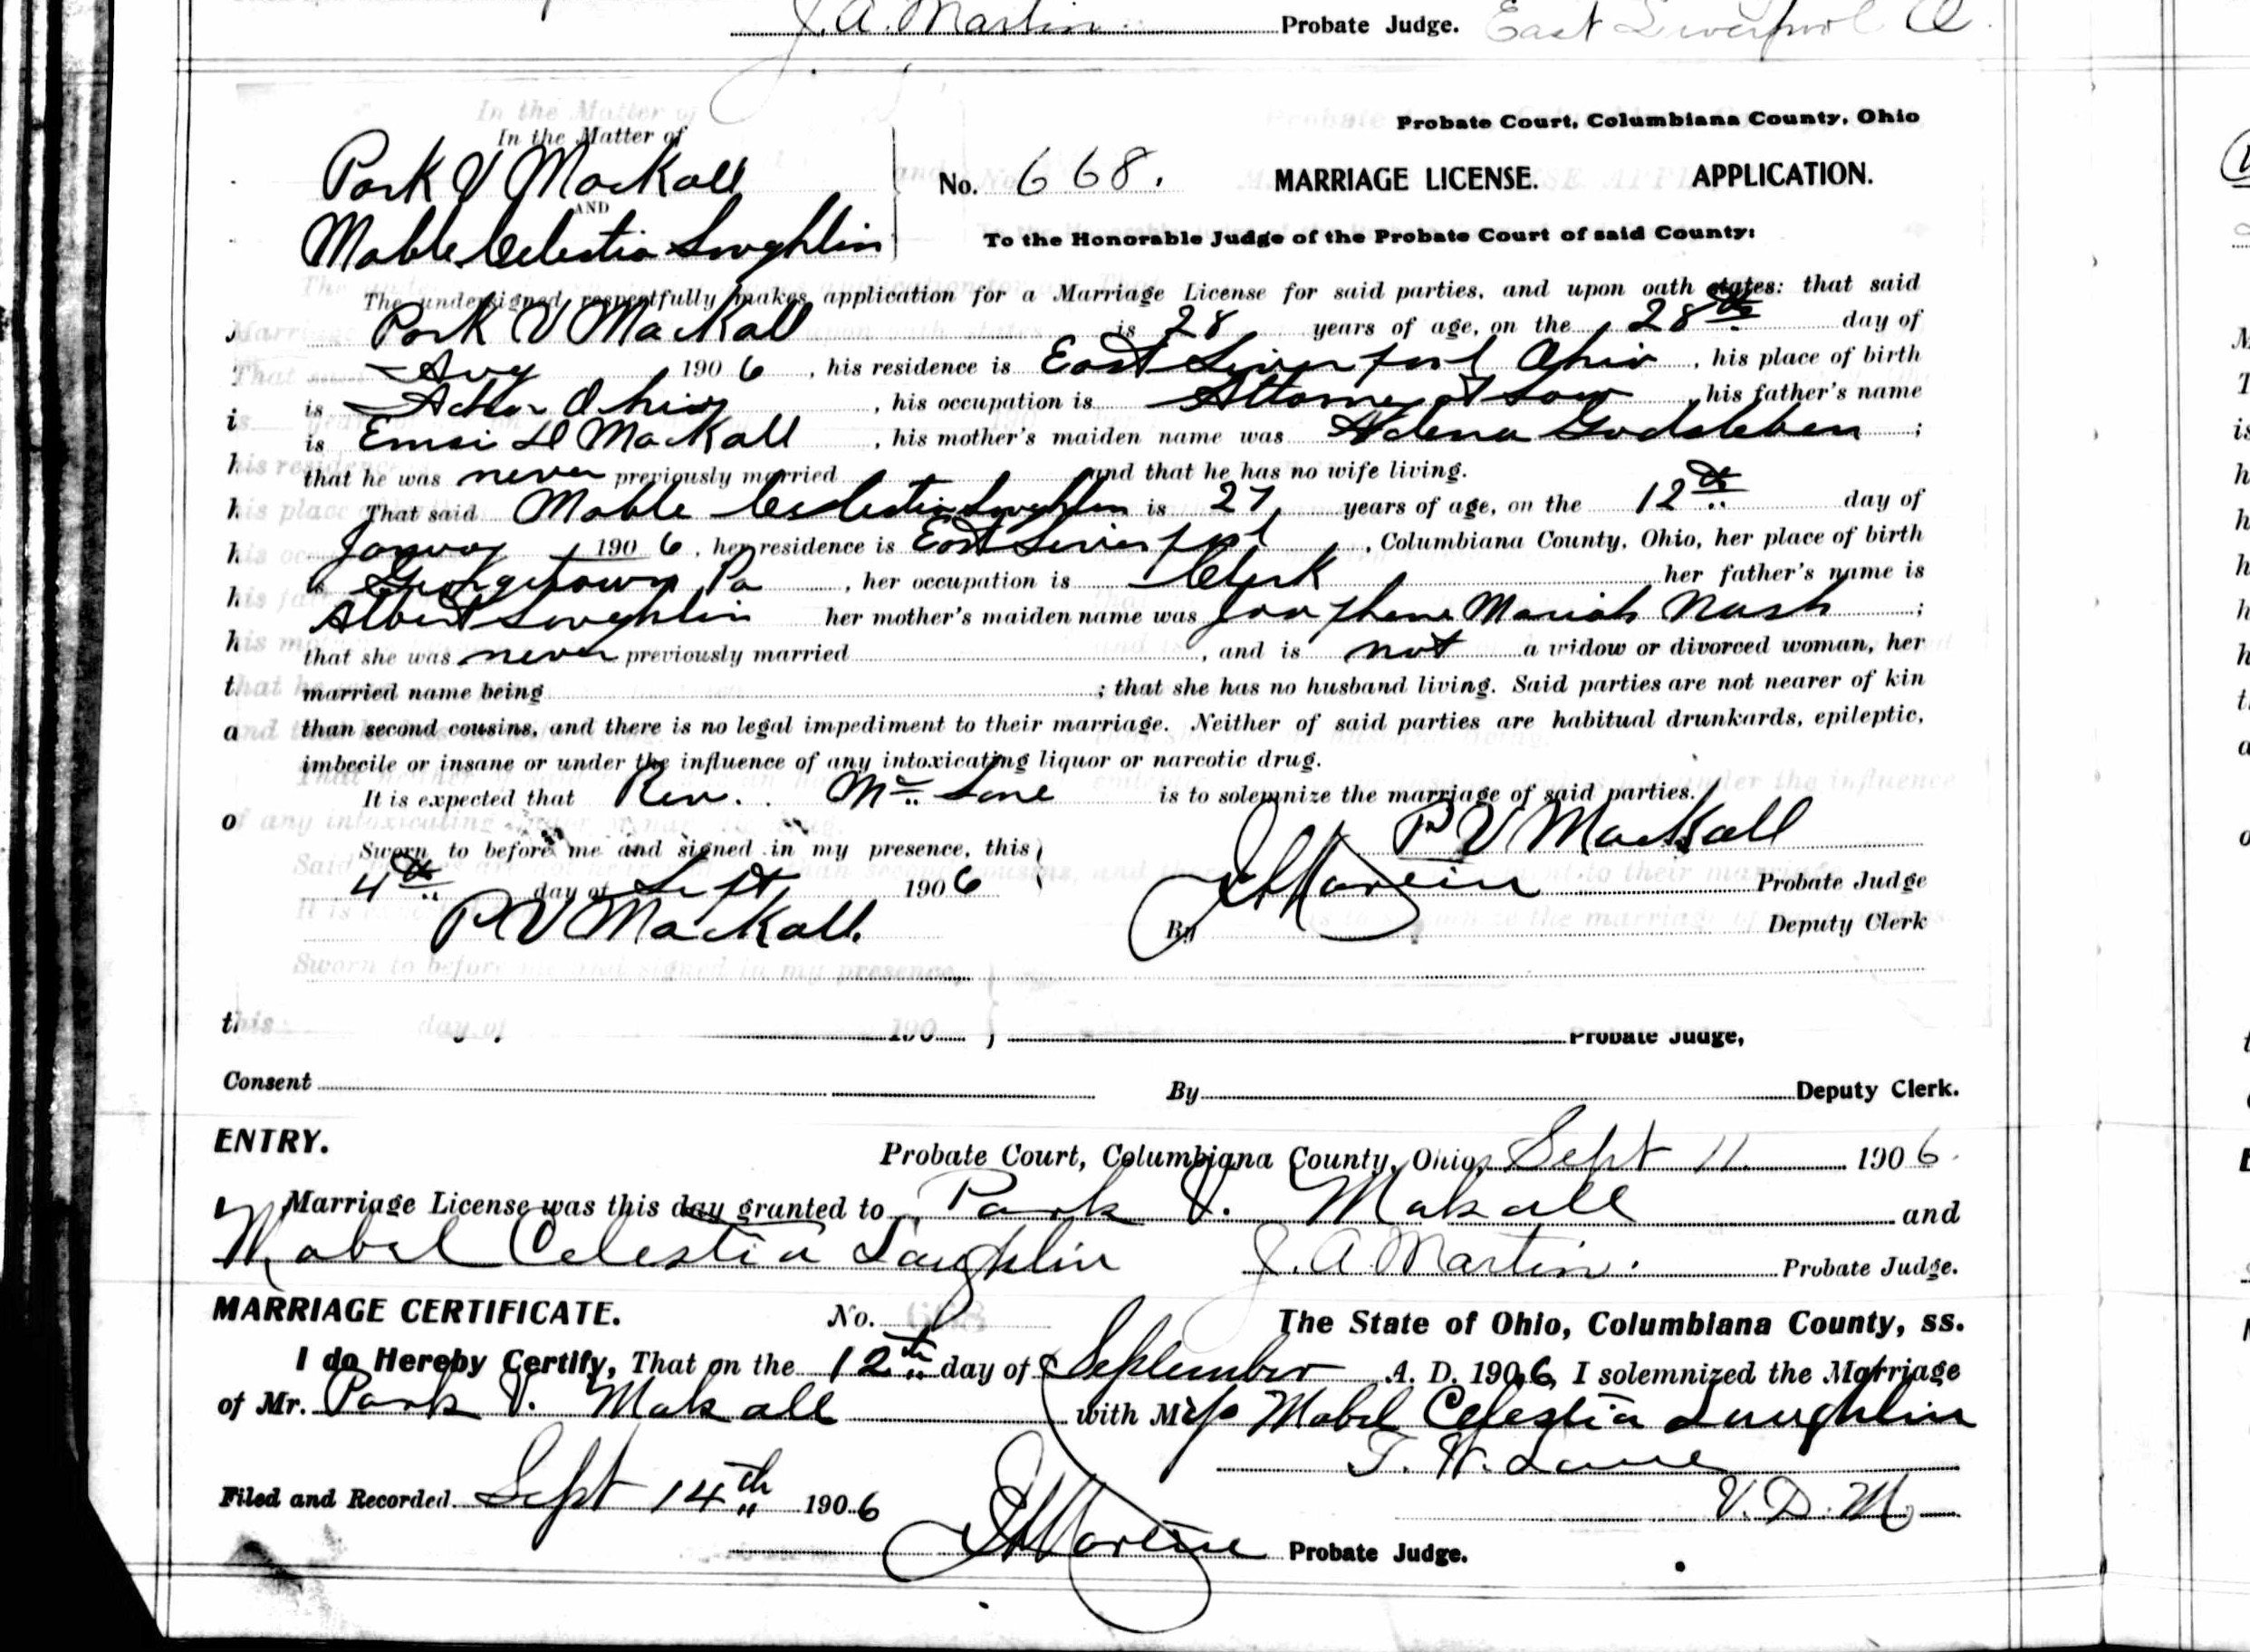 J. A. Martin Probate Judge. East Liverpool O.
In the Matter of
In the Matter of
Probate Court, Columbiana County, Ohio
Park V Mackall
AND
No. 668. MARRIAGE LICENSE. APPLICATION.
Mable Celestia Loughlin
To the Honorable Judge of the Probate Court of said County:
The undersigned respectfully makes application for a Marriage License for said parties, and upon oath states: that said
Park V Mackall is 28 years of age, on the 28th day of
Aug 1906, his residence is East Liverpool Ohio, his place of birth
is Achor Ohio, his occupation is Attorney at Law, his father's name
is D Mackall, his mother's maiden name was Godsleben;
that he was never previously married and that he has no wife living.
That said Mable Celestia Loughlin is 27 years of age, on the 12th day of
January 1906, her residence is East Liverpool, Columbiana County, Ohio, her place of birth
is Georgetown Pa, her occupation is Clerk her father's name is
Albert Loughlin her mother's maiden name was Josephene Mariah Nash;
that she was never previously married, and is not a widow or divorced woman, her
married name being ; that she has no husband living. Said parties are not nearer of kin
than second cousins, and there is no legal impediment to their marriage. Neither of said parties are habitual drunkards, epileptic,
imbecile or insane or under the influence of any intoxicating liquor or narcotic drug.
It is expected that Rev. Mc Lane is to solemnize the marriage of said parties.
P V Mackall
Sworn to before me and signed in my presence, this
4th day of Sept 1906
J A Martin Probate Judge
P V Mackall
By Deputy Clerk
this day of 190 Probate Judge,
Consent By Deputy Clerk.
ENTRY.
Probate Court, Columbiana County, Ohio, Sept 11 1906.
Marriage License was this day granted to Park V. Makall and
Mabel Celestia Laughlin J. A. Martin. Probate Judge.
MARRIAGE CERTIFICATE. No. 668 The State of Ohio, Columbiana County, ss.
I do Hereby Certify, That on the 12th day of September A. D. 1906, I solemnized the Marriage
of Mr. Park V. Makall with Miss Mabel Celestia Laughlin
T. W. Lane
V. D. M
Filed and Recorded Sept 14th 1906
J A Martin Probate Judge.